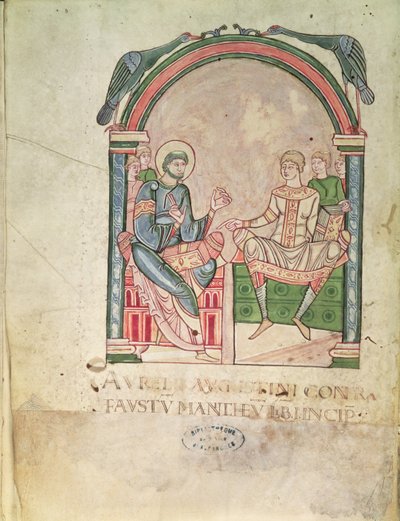 AVRELII AVGVSTINI CONTRA
FAVSTV̄ MANICHEV̄ LIB INCIP
BIBLIOTHEQUE